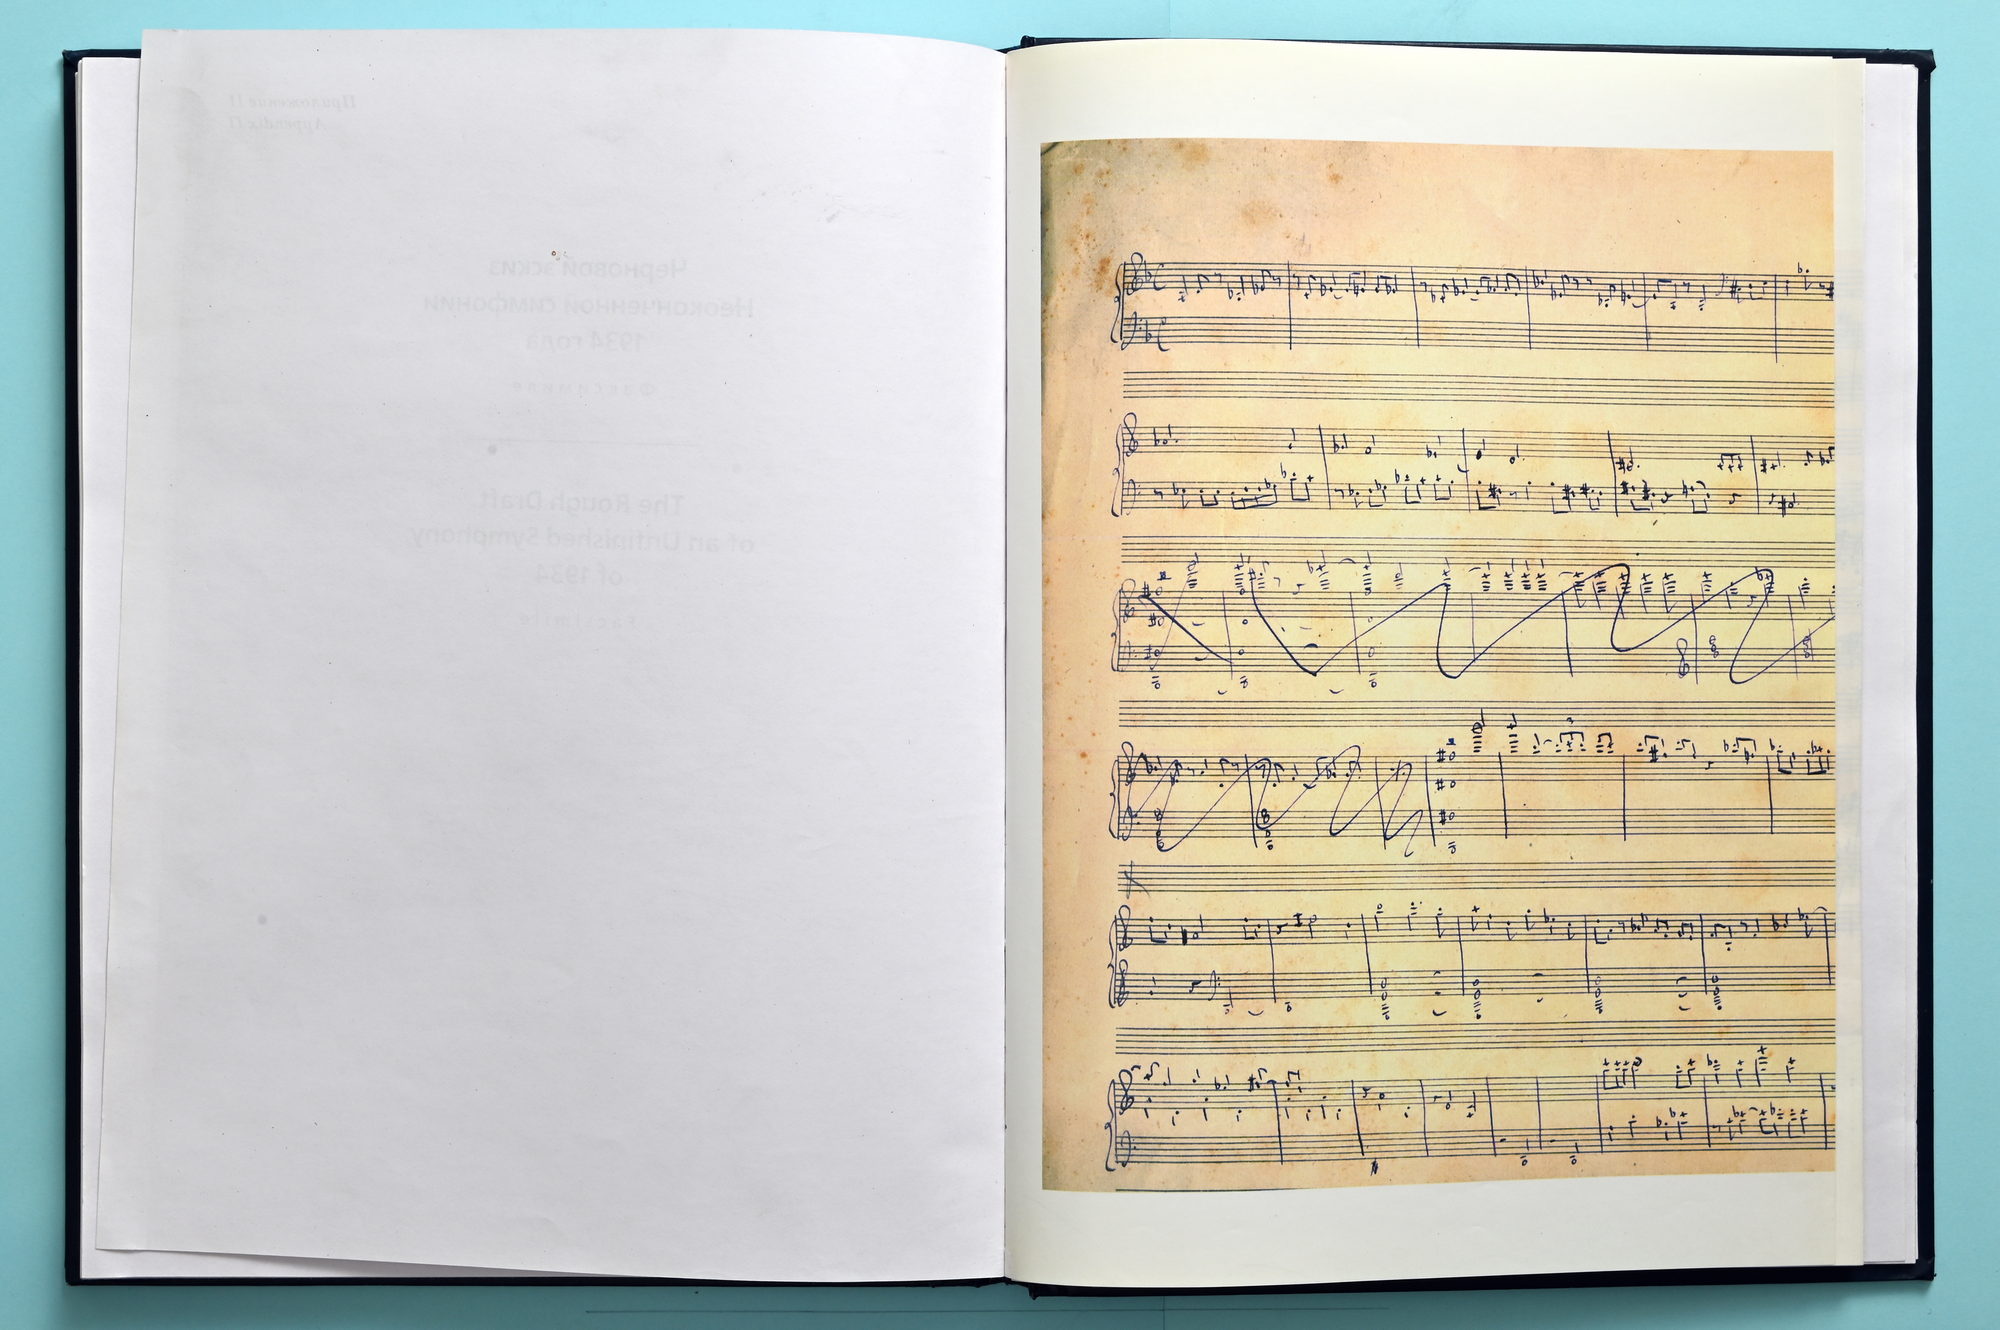 Приложение II
Appendix II
Черновой эскиз
Неоконченной симфонии
1934 года
Факсимиле
The Rough Draft
of an Unfinished Symphony
of 1934
Facsimile